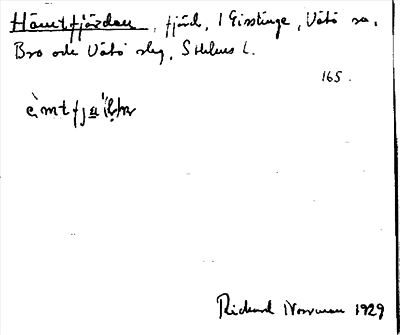 Hämtfjärden, fjärd, 1 Gisslinge, Vätö sn,
Bro och Vätö slg, Sthlms L.
165.
Rickard Norrman 1929